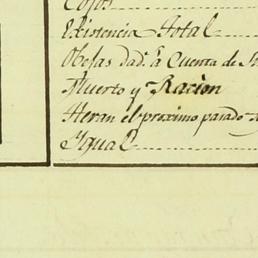 Cojos
Existencia Total
Obejas dad.s á Cuenta de
Muerto y Racion
Heran el proximo pasado
Ygual